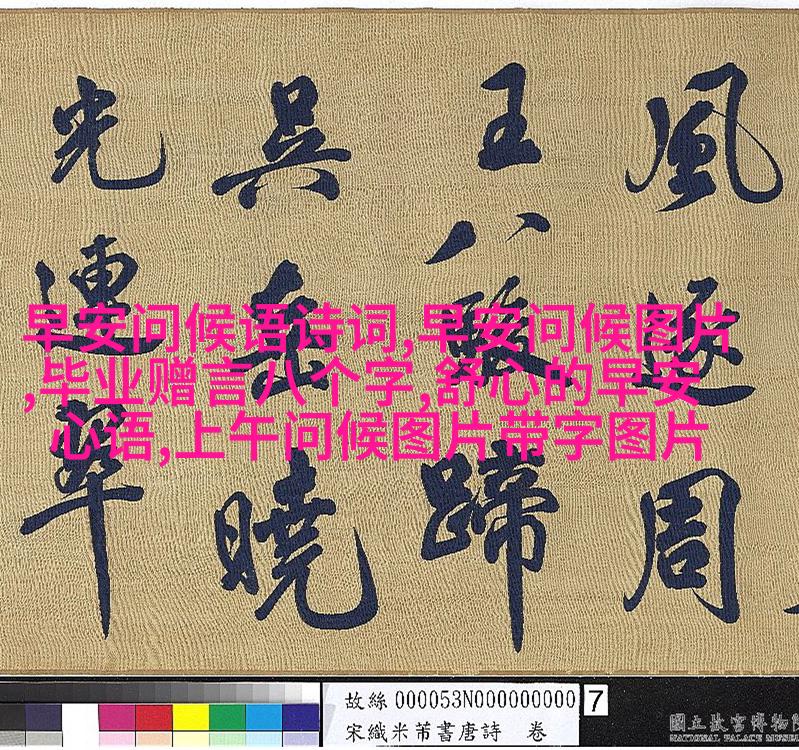 風逐周
王八駿蹄
吳岳曉
光連翠
早安问候语诗词,早安问候图片
,毕业赠言八个字,舒心的早安
心语,上午问候图片带字图片
故絲 000053N000000000 7
宋織米芾書唐詩 卷
國立故宮博物院
NATIONAL PALACE MUSEUM